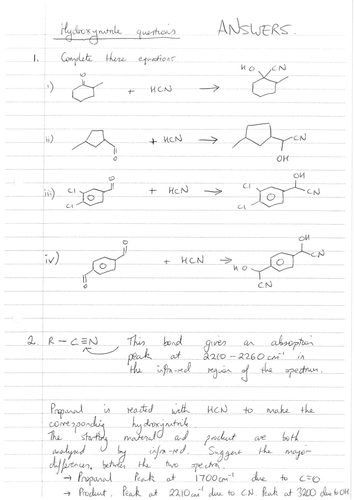 Hydroxynitrile questions ANSWERS.
1. Complete these equations
i) O + HCN → HO CN
ii) O + HCN → CN OH
iii) Cl Cl O + HCN → Cl Cl OH CN
iv) O O + HCN → HO CN OH CN
2. R - C ≡ N This bond gives an absorption
peak at 2210 - 2260 cm⁻¹ in
the infra-red region of the spectrum.
Propanal is reacted with HCN to make the
corresponding hydroxynitrile.
The starting material and product are both
analysed by infra-red. Suggest the major
differences between the two spectra.
→ Propanal Peak at 1700cm⁻¹ due to C=O
→ Product. Peak at 2210cm⁻¹ due to CN. Peak at 3200 due to OH